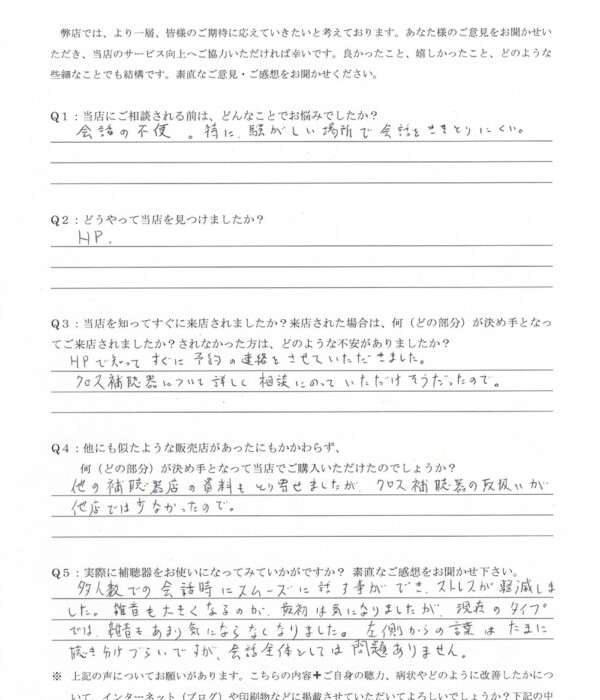 弊店では、より一層、皆様のご期待に応えていきたいと考えております。あなた様のご意見をお聞かせい
ただき、当店のサービス向上へご協力いただければ幸いです。良かったこと、嬉しかったこと、どのような
些細なことでも結構です。素直なご意見・ご感想をお聞かせください。
Q1：当店にご相談される前は、どんなことでお悩みでしたか？
会話の不便。特に、騒がしい場所で会話をききとりにくい。
Q2：どうやって当店を見つけましたか？
HP.
Q3：当店を知ってすぐに来店されましたか？来店された場合は、何（どの部分）が決め手となっ
てご来店されましたか？されなかった方は、どのような不安がありましたか？
HPで知って すぐに 予約の連絡をさせていただきました。
クロス補聴器について詳しく相談にのっていただけそうだったので。
Q4：他にも似たような販売店があったにもかかわらず、
何（どの部分）が決め手となって当店でご購入いただけたのでしょうか？
他の補聴器店の資料もとり寄せましたが、クロス補聴器の取扱いが
他店では少なかったので。
Q5：実際に補聴器をお使いになってみていかがですか？ 素直なご感想をお聞かせ下さい。
多人数での会話時にスムーズに話す事ができ、ストレスが軽減しま
した。雑音も大きくなるのが、最初は気になりましたが、現在のタイプ
では、雑音もあまり気にならなくなりました。左側からの言葉はたまに
聴き分けづらいですが、会話全体としては問題ありません。
※ 上記の声についてお願いがあります。こちらの内容＋ご自身の聴力、病状やどのように改善したかにつ
いて、インターネット（ブログ）や印刷物などに掲載させていただいてよろしいでしょうか？下記の中